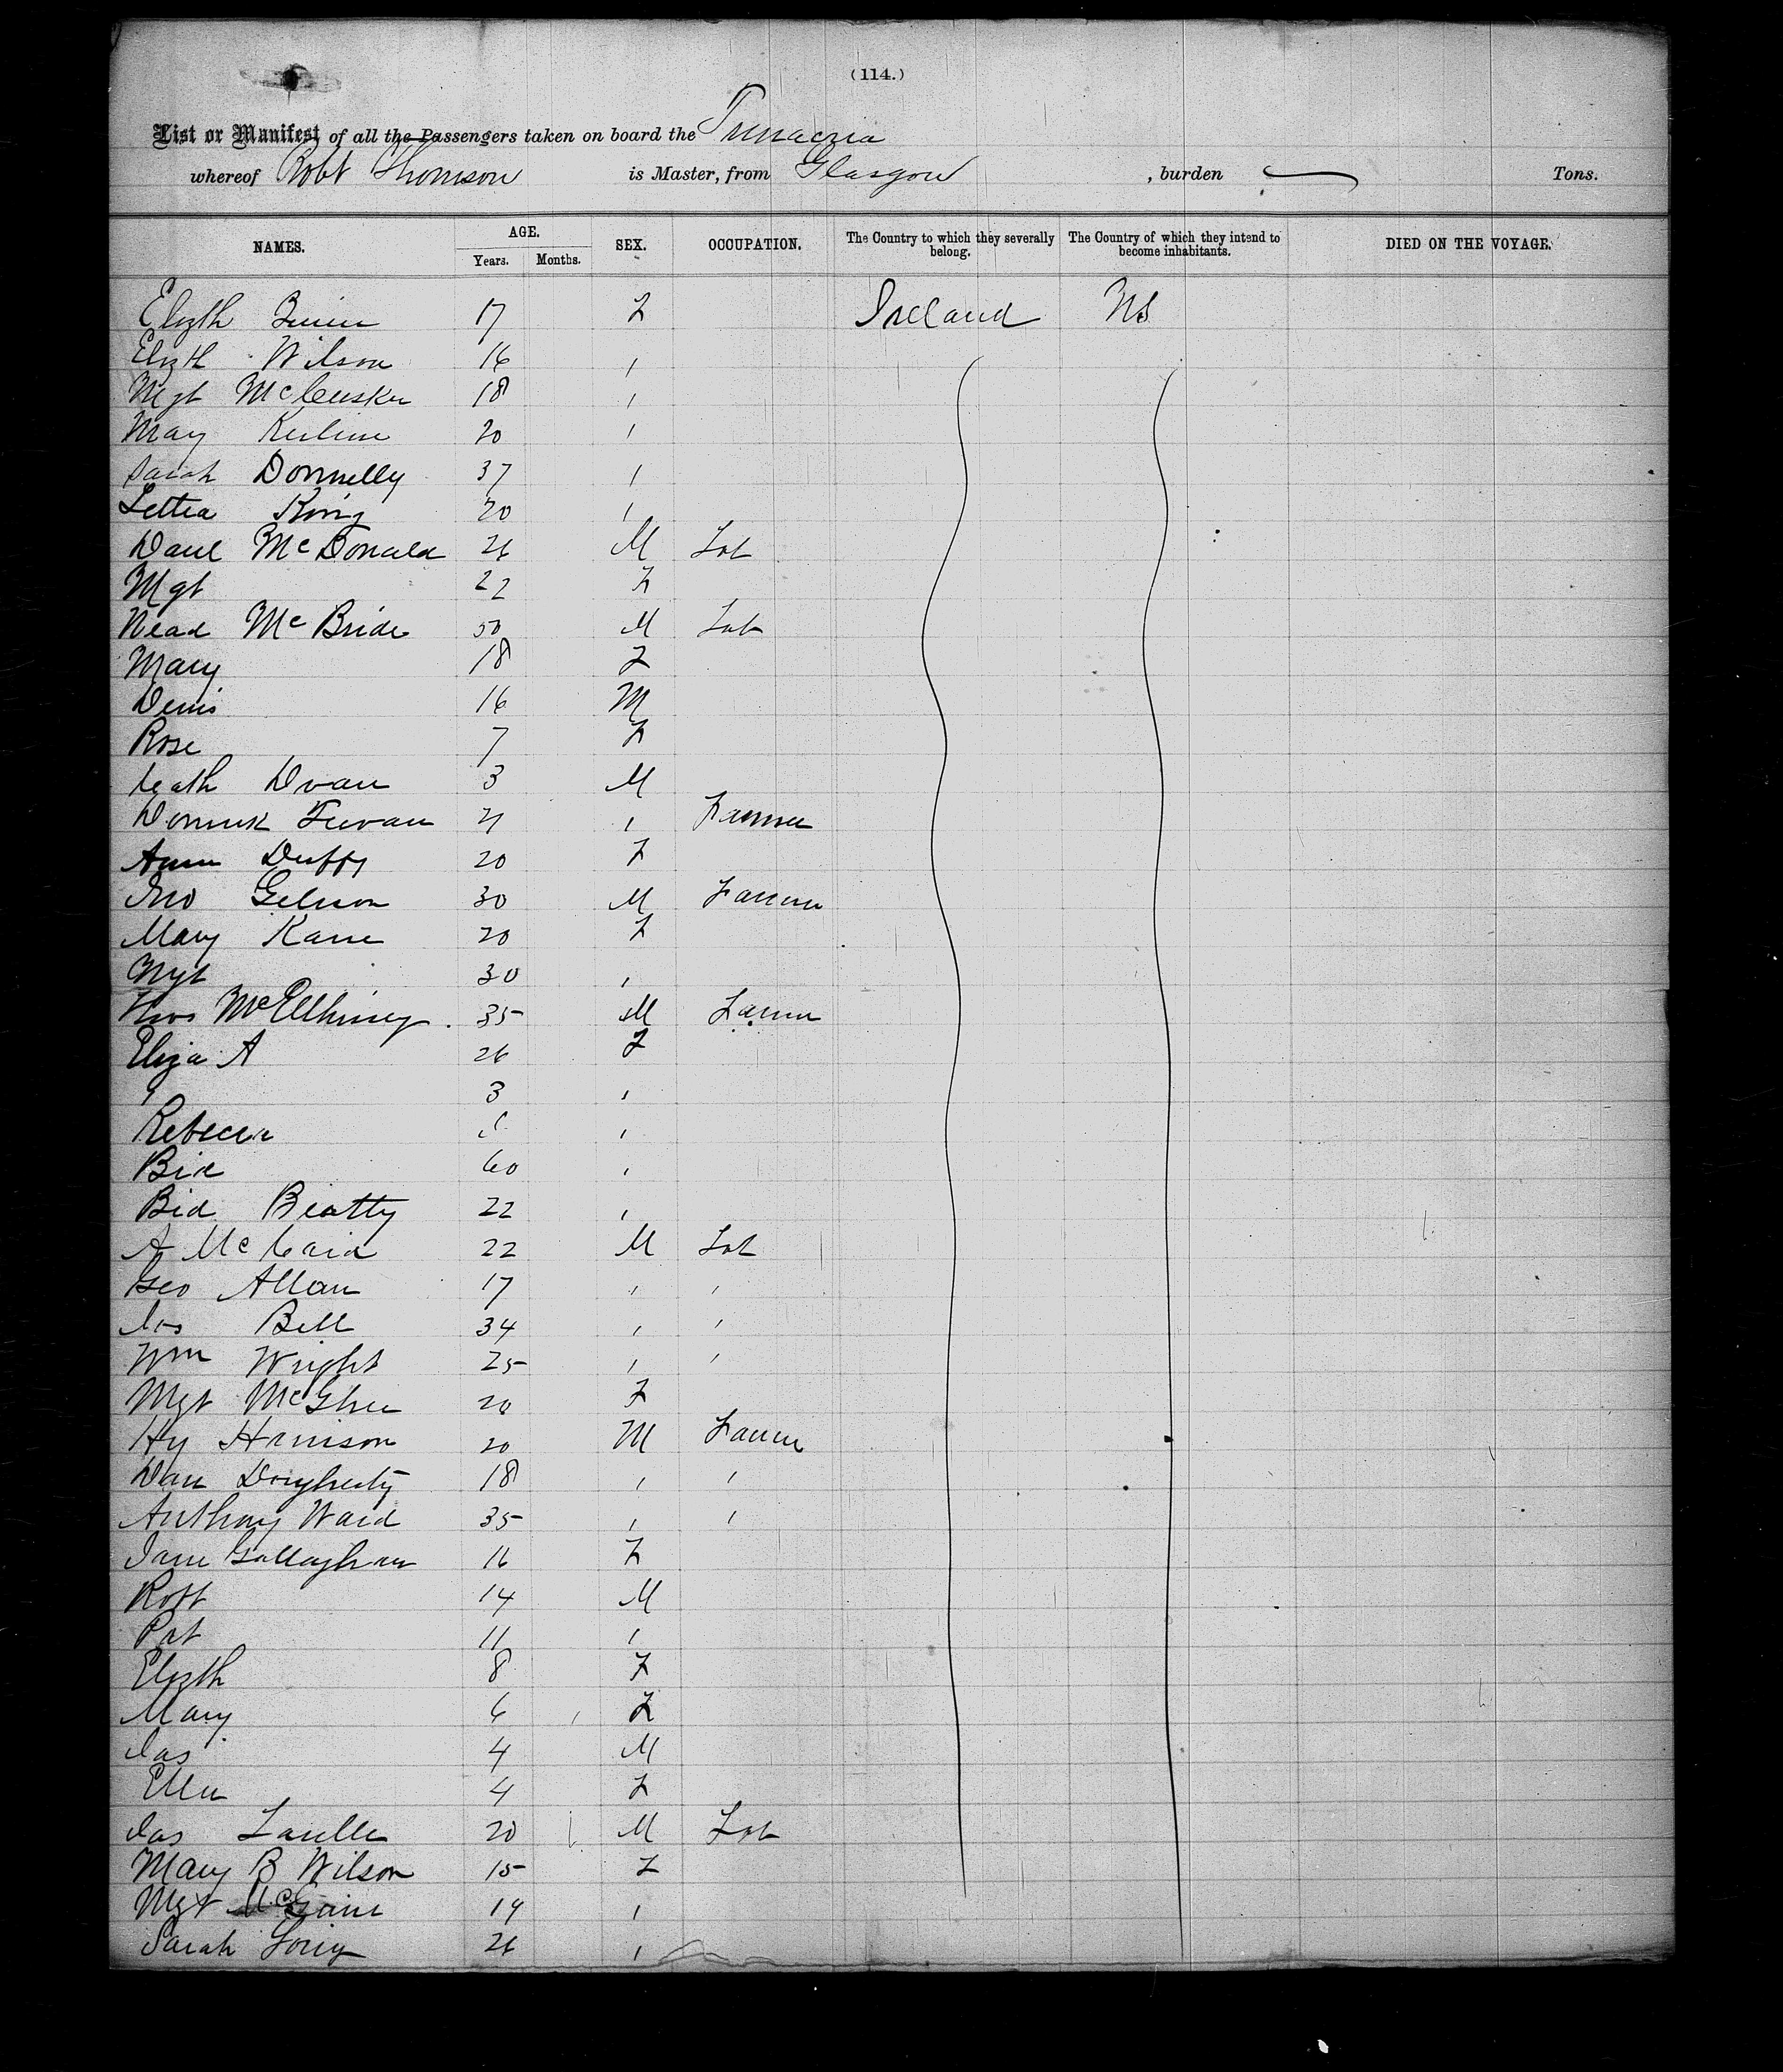 (114.)
List or Manifest of all the Passengers taken on board the Trinacria
whereof Robt Thomson is Master, from Glasgow , burden Tons.
NAMES. AGE. Years. Months. SEX. OCCUPATION. The Country to which they severally belong. The Country of which they intend to become inhabitants. DIED ON THE VOYAGE.
Elizth 17 F Ireland US
Elizth Wilson 16 "
Mgt McCusker 18 "
May 20 "
Sarah Donnelly 37 "
Lettia King 20 "
Danl McDonald 26 M Lab
Mgt 22 F
Nead McBride 50 M Lab
Mary 18 F
Denis 16 M
Rose 7 F
Cath Dvan 3 M
" Farmer
Ann Duffy 20 F
Jno 30 M Farmer
Mary Kane 20 F
Mgt 30 "
Thos McElhinney 35 M Farmer
Eliza A 26 F
3 "
Rebecca "
Bid 60 "
Bid Beatty 22 "
A McCaid 22 M Lab
Geo Allan 17 " "
Jas Bell 34 " "
Wm Wright 25 " "
Mgt McGhee 20 F
Hy Harrison 20 M Farmer
Dan Dougherty 18 " "
Anthony Ward 35 " "
Jane Gallagher 16 F
Robt 14 M
Pat 11 "
Elizth 8 F
Mary 6 F
Jas 4 M
Ellen 4 F
Jas 20 M Lab
Mary B Wilson 15 F
Mgt 19 "
Sarah 26 "